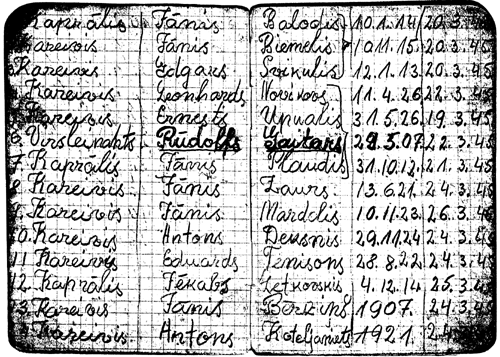 Kaprālis Jānis Balodis 10.1.14. 20.3.45
Kareivis Jānis Biemelis 10.11.15. 20.3.45
Kareivis Edgars Svikulis 12.1.13. 20.3.45
Kareivis Leonhards Novikovs 11.4.26. 22.3.45
Kareivis Ernests Upmalis 31.5.26. 19.3.45
6. Virsleitnants Rūdolfs 29.5.07. 22.3.45
7. Kaprālis Jānis Plaudis 31.10.12. 21.3.45
8. Kareivis Jānis Zaurs 13.6.21. 24.3.45
9. Kareivis Jānis Mardelis 10.11.23. 26.3.45
10. Kareivis Antons Deksnis 29.11.24 24.3.45
11 Kareivis Eduards Tenisons 28.8.22. 24.3.45
12. Kaprālis Jēkabs Zetkovskis 4.12.14. 25.3.45
13. Kareivis Jānis Bērziņš 1907. 24.3.45
Kareivis Antons Koteljanets 1921.